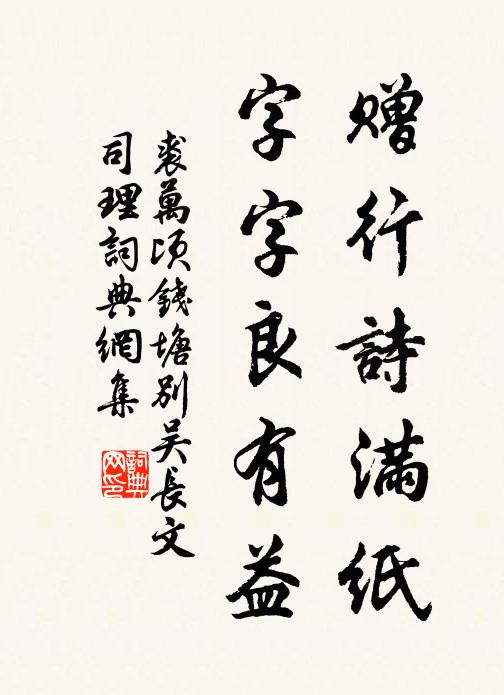 赠行詩满紙
字字良有益
裘萬顷錢塘别吴長文
司理詞典網集
詞典网印